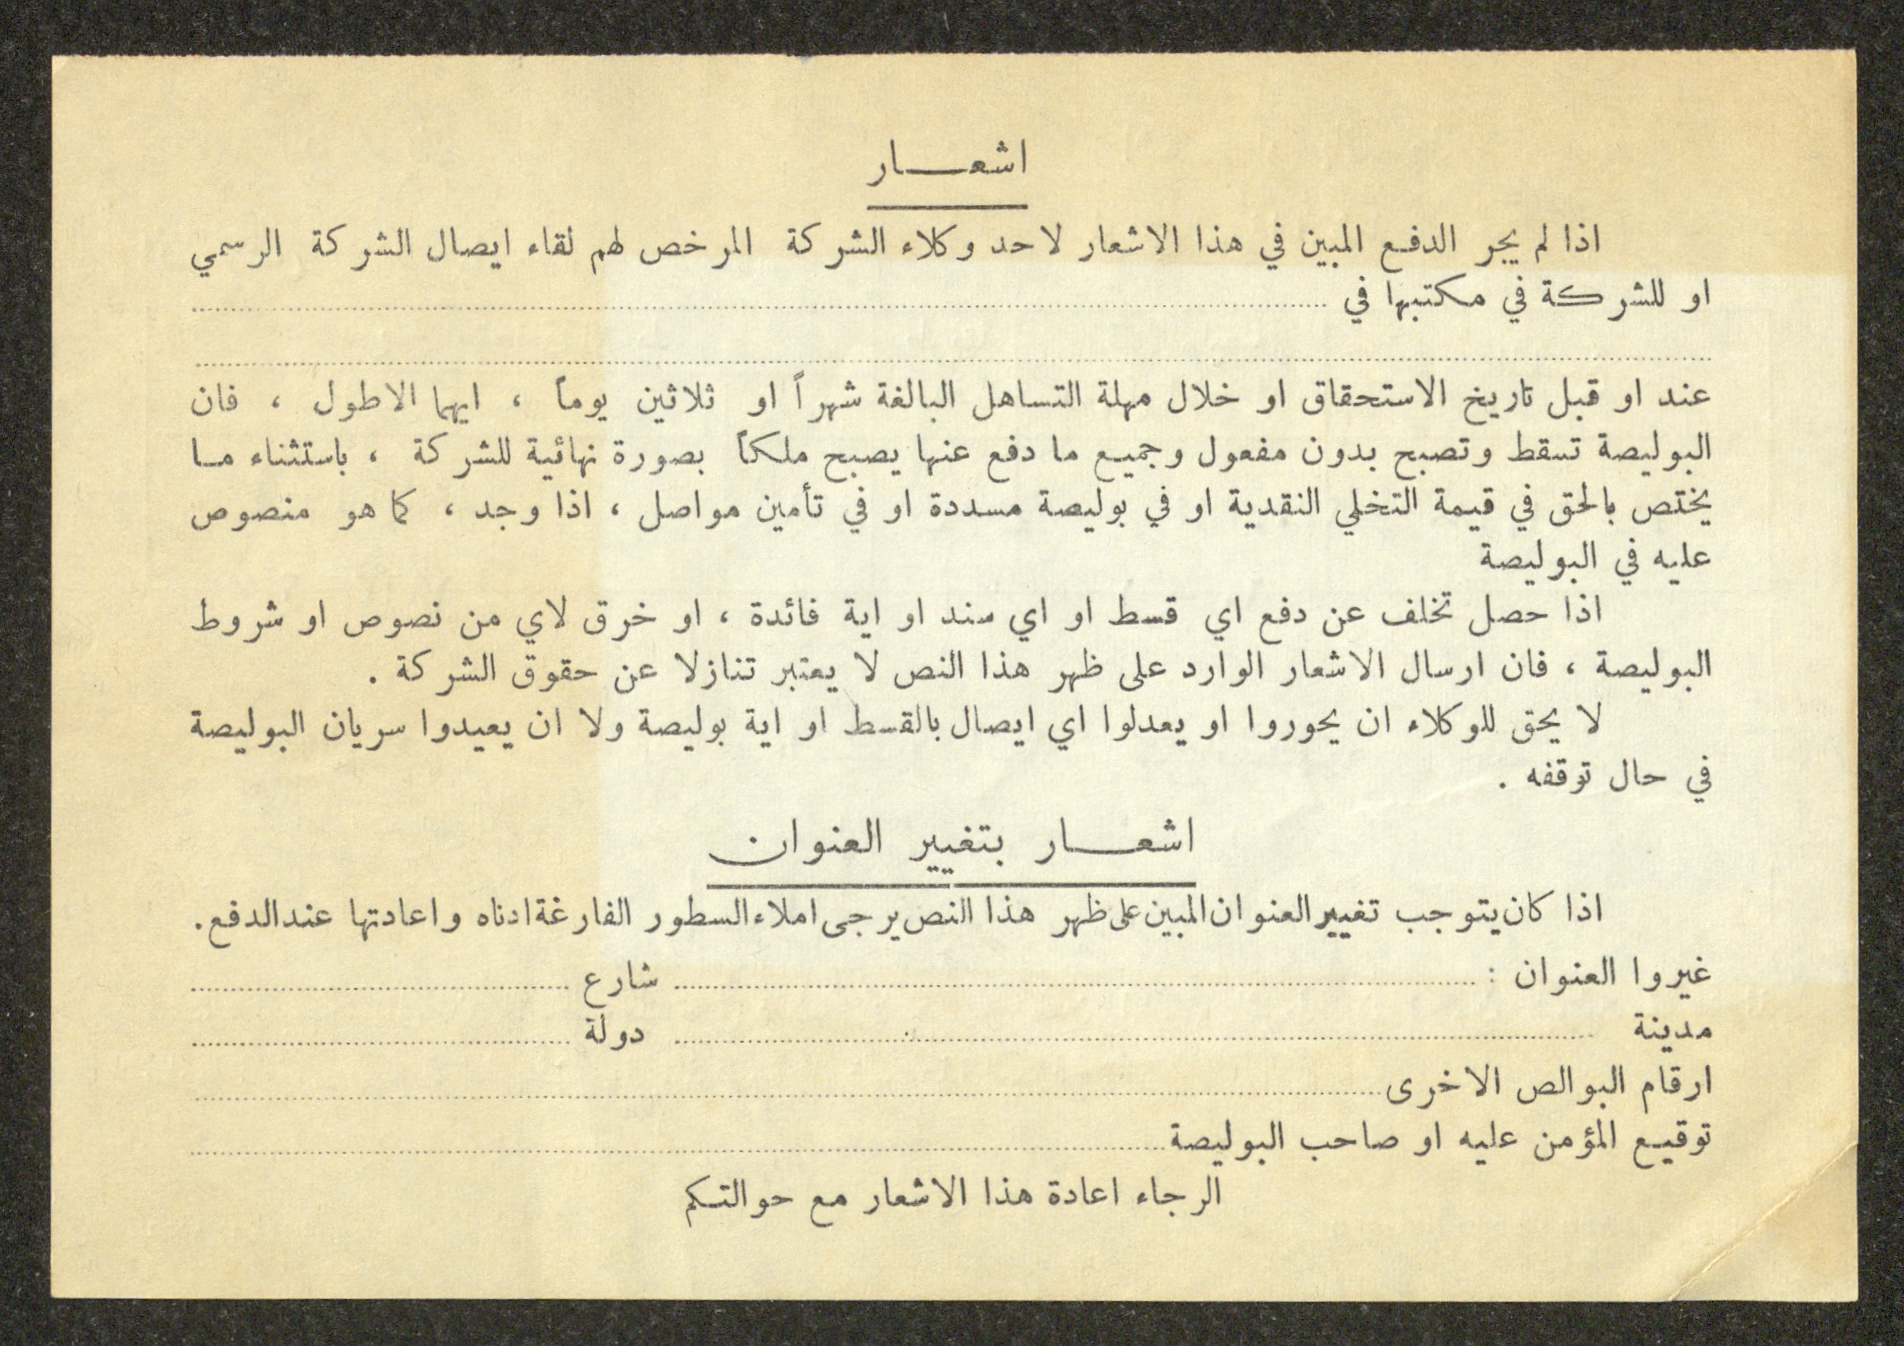 اشعـــار
اذا لم يجر الدفع المبين في هذا الاشعار لاحد وكلاء الشركة المرخص لهم لقاء ايصال الشركة الرسمي
او للشركة في مكتبها في ........................................
........................................
عند او قبل تاريخ الاستحقاق او خلال مهلة التساهل البالغة شهراً او ثلاثين يوماً ، ايهما الاطول ، فان
البوليصة تسقط وتصبح بدون مفعول وجميع ما دفع عنها يصبح ملكاً بصورة نهائية للشركة ، باستثناء مـا
يختص بالحق في قيمة التخلي النقدية او في بوليصة مسددة او في تأمين مواصل ، اذا وجد ، كما هو منصوص
عليه في البوليصة
اذا حصل تخلف عن دفع اي قسط او اي سند او اية فائدة ، او خرق لاي من نصوص او شروط
البوليصة ، فان ارسال الاشعار الوارد على ظهر هذا النص لا يعتبر تنازلا عن حقوق الشركة .
لا يحق للوكلاء ان يحوروا او يعدلوا اي ايصال بالقسط او اية بوليصة ولا ان يعيدوا سريان البوليصة
في حال توقفه .
اشعـــار بتغيير العنوان
اذا كان يتوجب تغيير العنوان المبين على ظهر هذا النص يرجى املاء السطور الفارغة ادناه واعادتها عند الدفع .
غيروا العنوان : .................... شارع ....................
مدينة .................... دولة ....................
ارقام البوالص الاخرى ........................................
توقيع المؤمن عليه او صاحب البوليصة ........................................
الرجاء اعادة هذا الاشعار مع حوالتكم